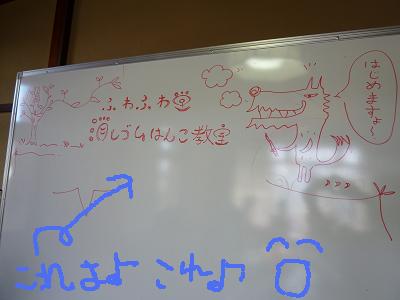 ふわふわ堂
消しゴムはんこ教室
はじめますよ〜
これはよ これ♪